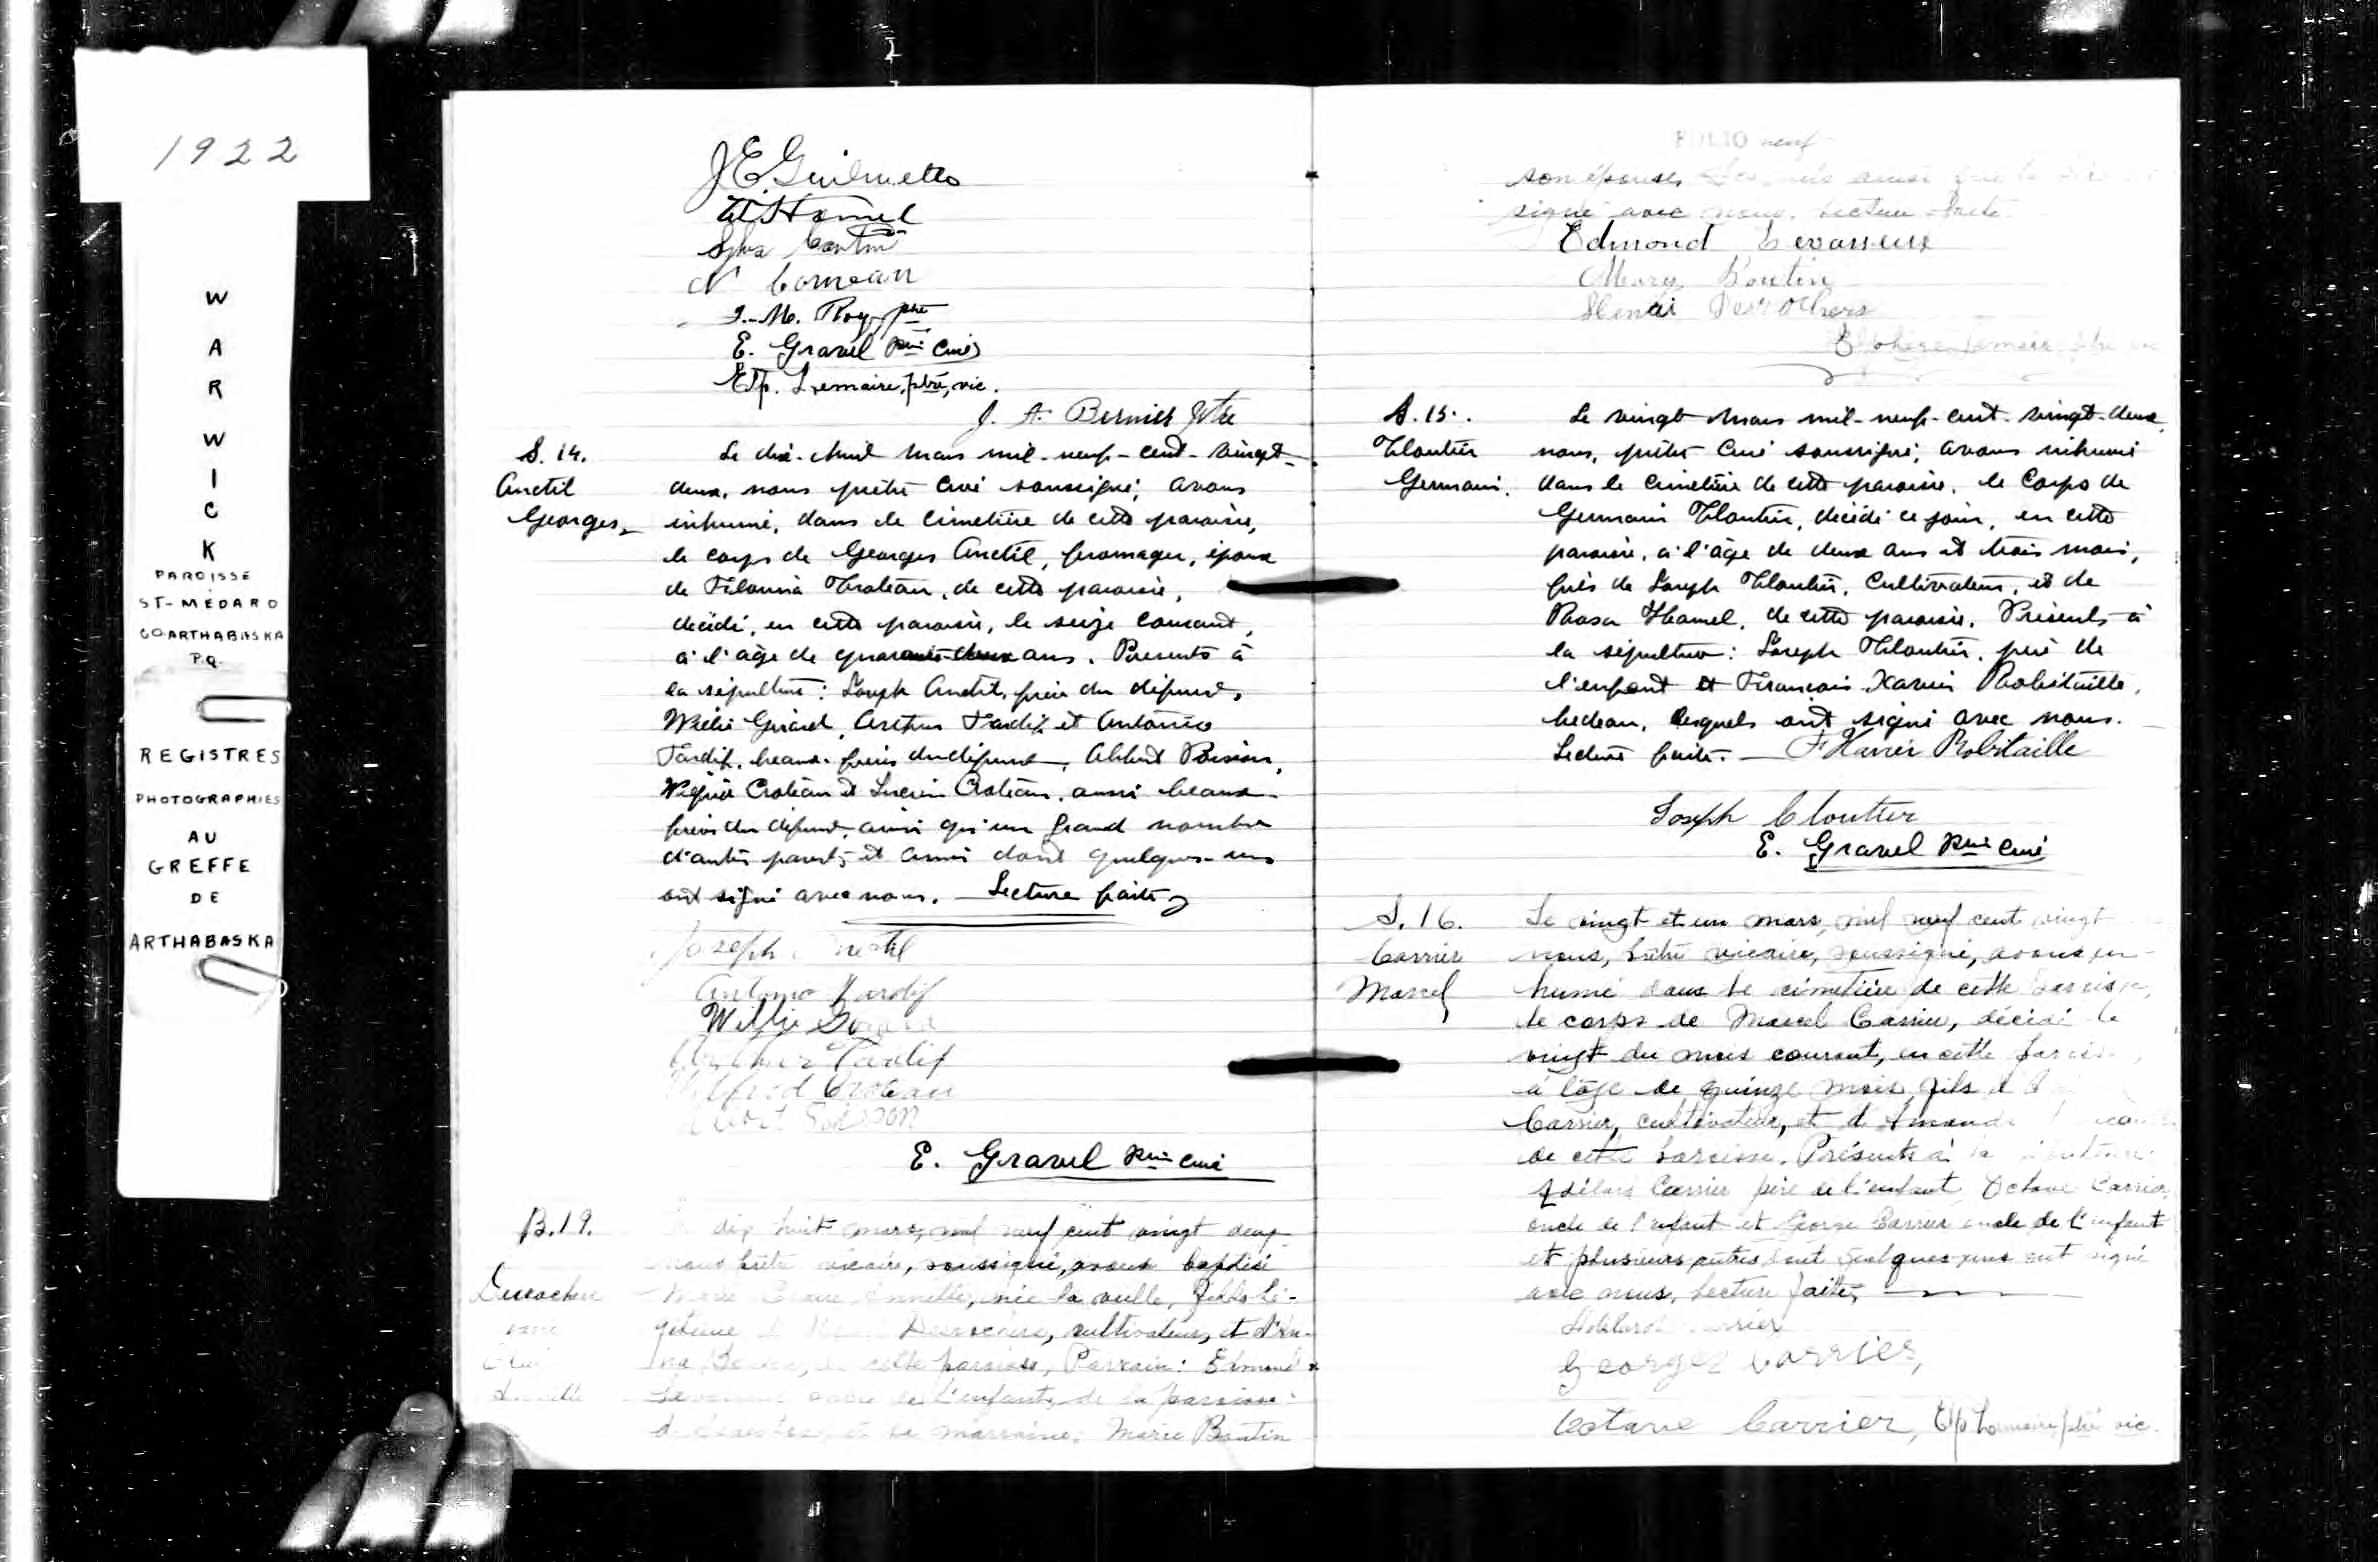 1922
W
A
R
W
I
C
K
PAROISSE
ST-MÉDARD
CO ARTHABASKA
P.Q.
REGISTRES
PHOTOGRAPHIÉS
AU
GREFFE
DE
ARTHABASKA
J E Guilmette
Hamel
N Comeau
J.-M. Roy, ptre
E. Gravel Ptre Curé
Elp. Lemaire, ptre, vic.
J. A. Bernier Ptre
S. 14.
Anctil
Georges
Le dix-huit mars mil-neuf-cent-vingt-
deux, nous prêtre curé soussigné, avons
inhumé, dans le cimetière de cette paroisse,
le corps de Georges Anctil, fromager, époux
de Croteau, de cette paroisse,
décédé, en cette paroisse, le seize courant,
à l'âge de quarante-deux ans. Présents à
la sépulture: Joseph Anctil, frère du défunt,
Willie Girard, Arthur Tardif et Antonio
Tardif, beaux-frères du défunt, Albert Poisson,
Croteau et Lucien Croteau, aussi beaux-
frères du défunt, ainsi qu'un grand nombre
d'autres parents et amis dont quelques-uns
ont signé avec nous. Lecture faite
Joseph Anctil
Antonio Tardif
Willie Girard
Arthur Tardif
Wilfrid Croteau
Albert Poisson
E. Gravel Ptre curé
B. 19.
Desrochers
dix huit mars, mil neuf cent vingt deux
nous prêtre vicaire, soussigné, avons baptisé
Marie Claire Annette, née la veille, fille lé-
gitime de Desrochers, cultivateur, et d'An-
na de cette paroisse, Parrain: Edmond
Levasseur oncle de l'enfant, de la paroisse
et la marraine: Marie Boutin
FOLIO neuf
son épouse,
signé avec nous. Lecture faite.
Edmond Levasseur
Mary Boutin
Henri Desrochers
Elphège Lemaire, ptre vic
S. 15.
Cloutier
Germain.
Le vingt mars mil-neuf-cent-vingt-deux,
nous, prêtre curé soussigné, avons inhumé
dans le cimetière de cette paroisse, le corps de
Germain Cloutier, décédé ce jour, en cette
paroisse, à l'âge de deux ans et trois mois,
fils de Joseph Cloutier, cultivateur, et de
Rosa Hamel, de cette paroisse. Présents à
la sépulture: Joseph Cloutier, père de
l'enfant et François Xavier Robitaille,
bedeau, lesquels ont signé avec nous.
Lecture faite. — F Xavier Robitaille
Joseph Cloutier
E. Gravel Ptre curé
S. 16.
Carrier
Marcel
Le vingt et un mars, mil neuf cent vingt
nous, prêtre vicaire, soussigné, avons in-
humé dans le cimetière de cette paroisse,
le corps de Marcel Carrier, décédé le
vingt du mois courant, en cette paroisse,
à l'âge de quinze mois, fils
Carrier, cultivateur, et d'Amanda
de cette paroisse. Présents à la sépulture
Carrier père de l'enfant, Octave Carrier
oncle de l'enfant et George Carrier oncle de l'enfant
et plusieurs autres dont quelques-uns ont signé
avec nous, Lecture faite,
Carrier
Georges Carrier,
Octave Carrier, Elp Lemaire ptre vic.